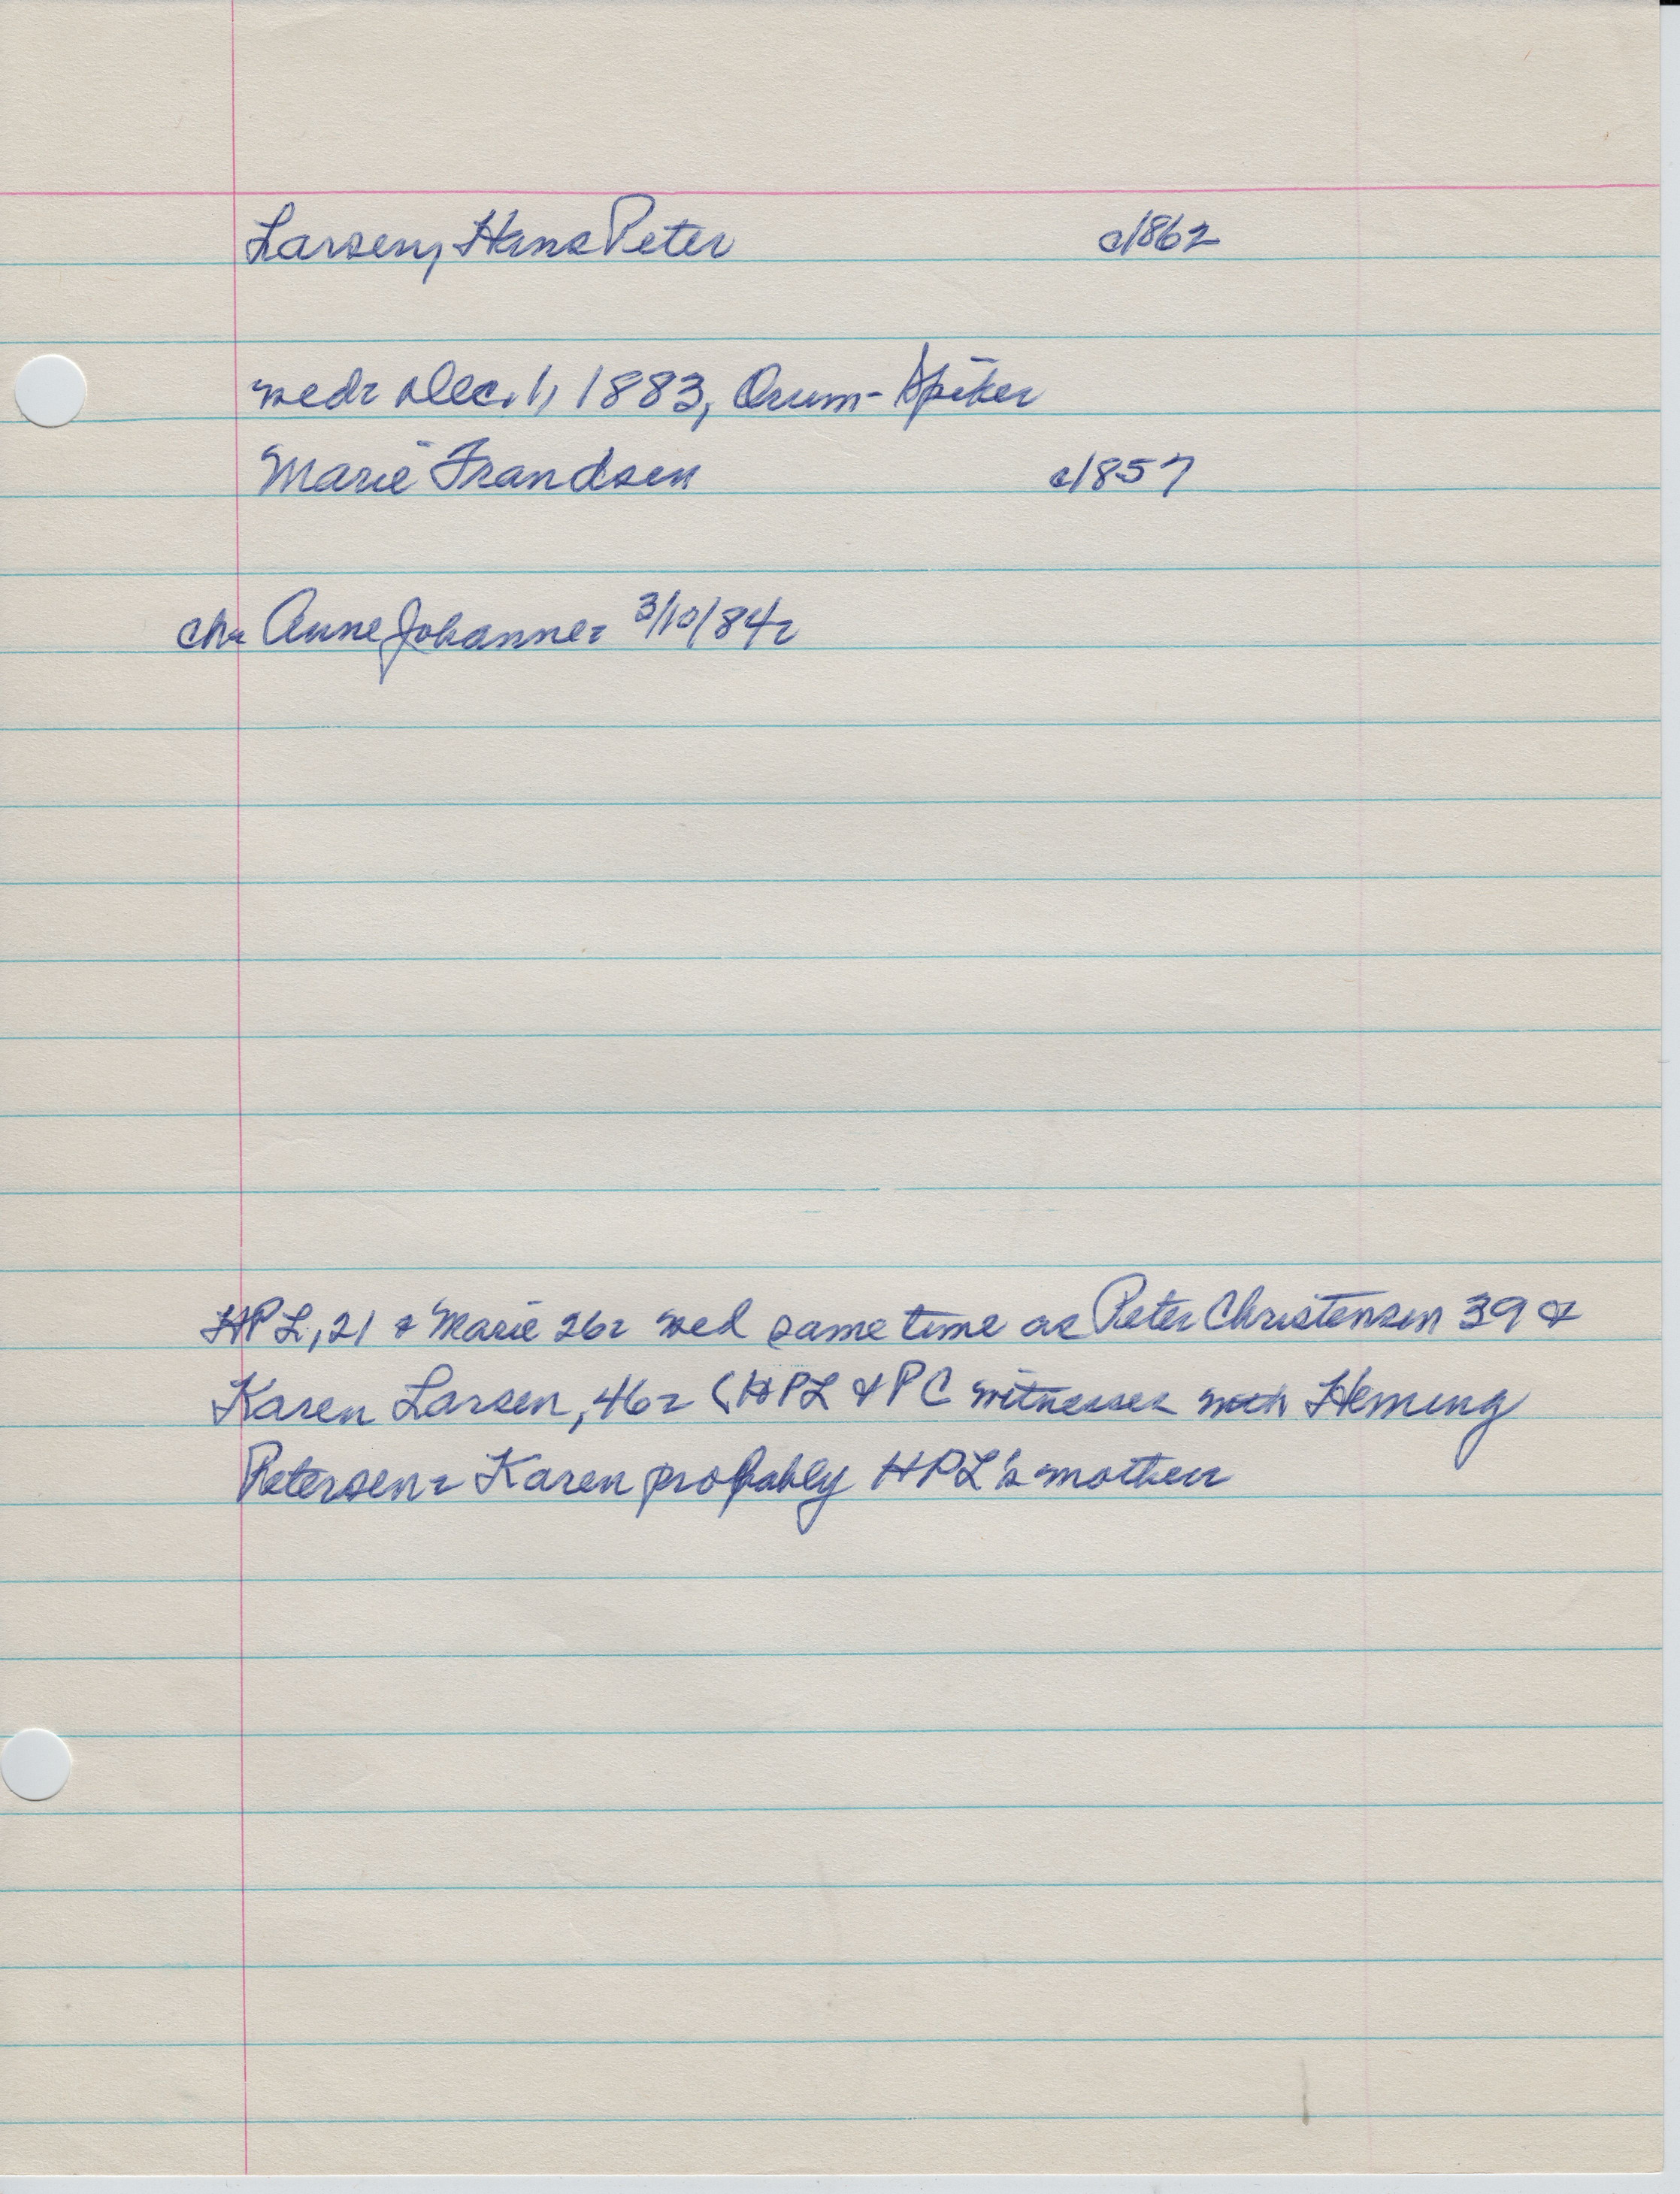 Larsen, Hans Peter c1862
wed. Dec. 1, 1883, Orum-Spiker
Marie Frandsen c1857
ch. Anne Johanne. 3/10/84.
HPL, 21 & Marie 26. wed same time as Peter Christensen 39 &
Karen Larsen, 46. (HPL & PC witnesses with Heming
Petersen. Karen probably HPL's mother